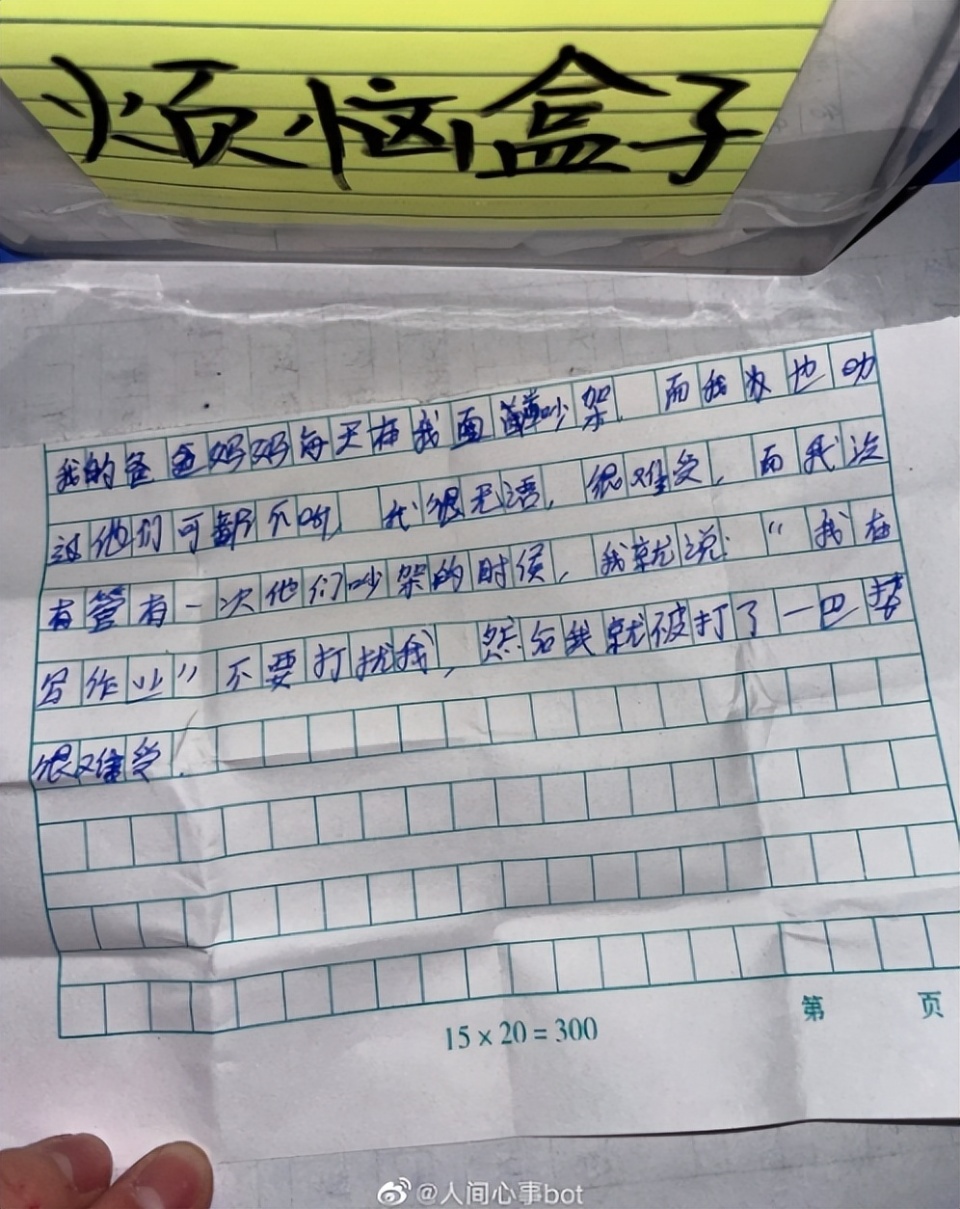 烦恼盒子
我的爸爸妈妈每天在我面前吵架，而我也劝
过他们可都不听，我很无语，很难受，而我没
有管有一次他们吵架的时侯，我就说：“我在
写作业”不要打扰我，然后我就被打了一巴掌
很难受．
15×20=300
第 页
@人间心事bot